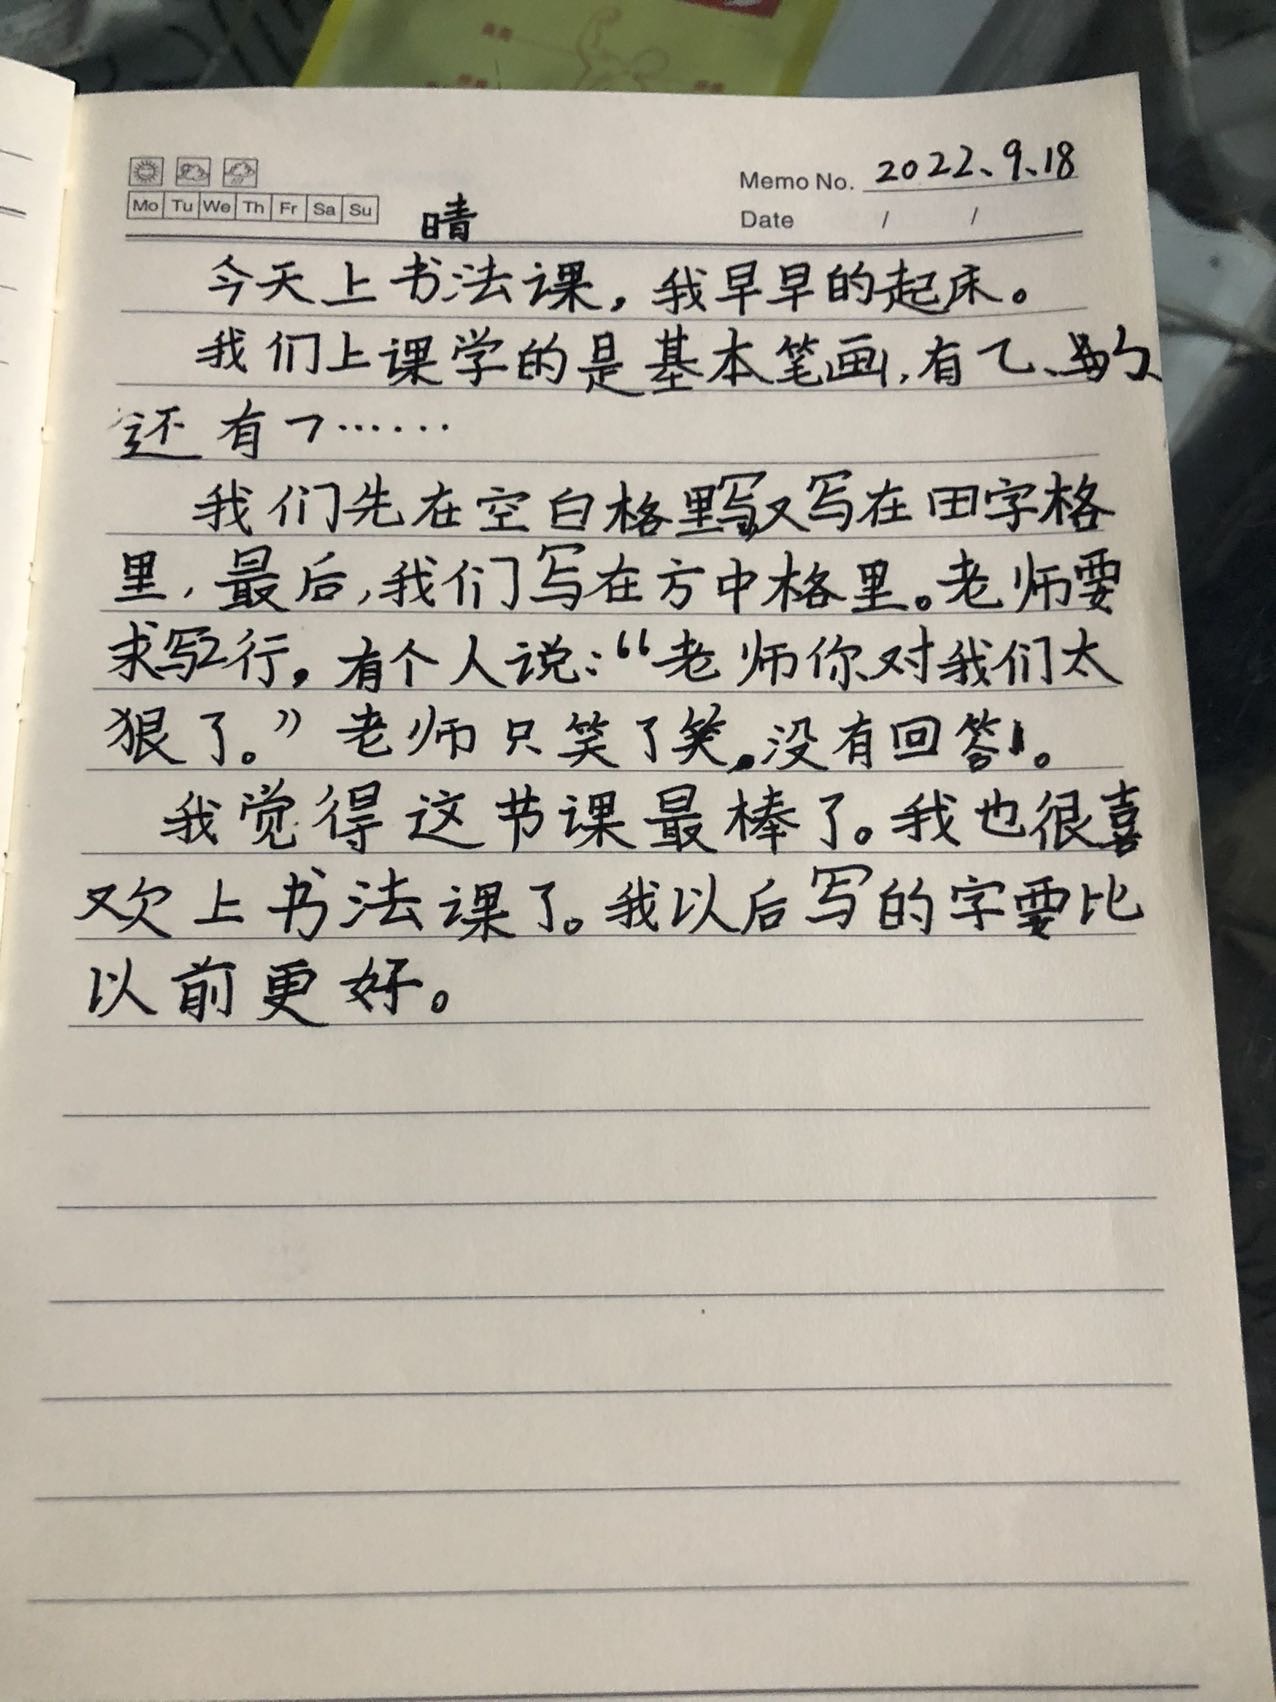 Memo No. 2022、9、18
Mo Tu We Th Fr Sa Su
Date / /
晴
今天上书法课，我早早的起床。
我们上课学的是基本笔画，有乁、
还有㇇……
我们先在空白格里写，又写在田字格
里，最后，我们写在方中格里。老师要
求写2行。有个人说：“老师你对我们太
狠了。”老师只笑了笑。没有回答。
我觉得这节课最棒了。我也很喜
欢上书法课了。我以后写的字要比
以前更好。